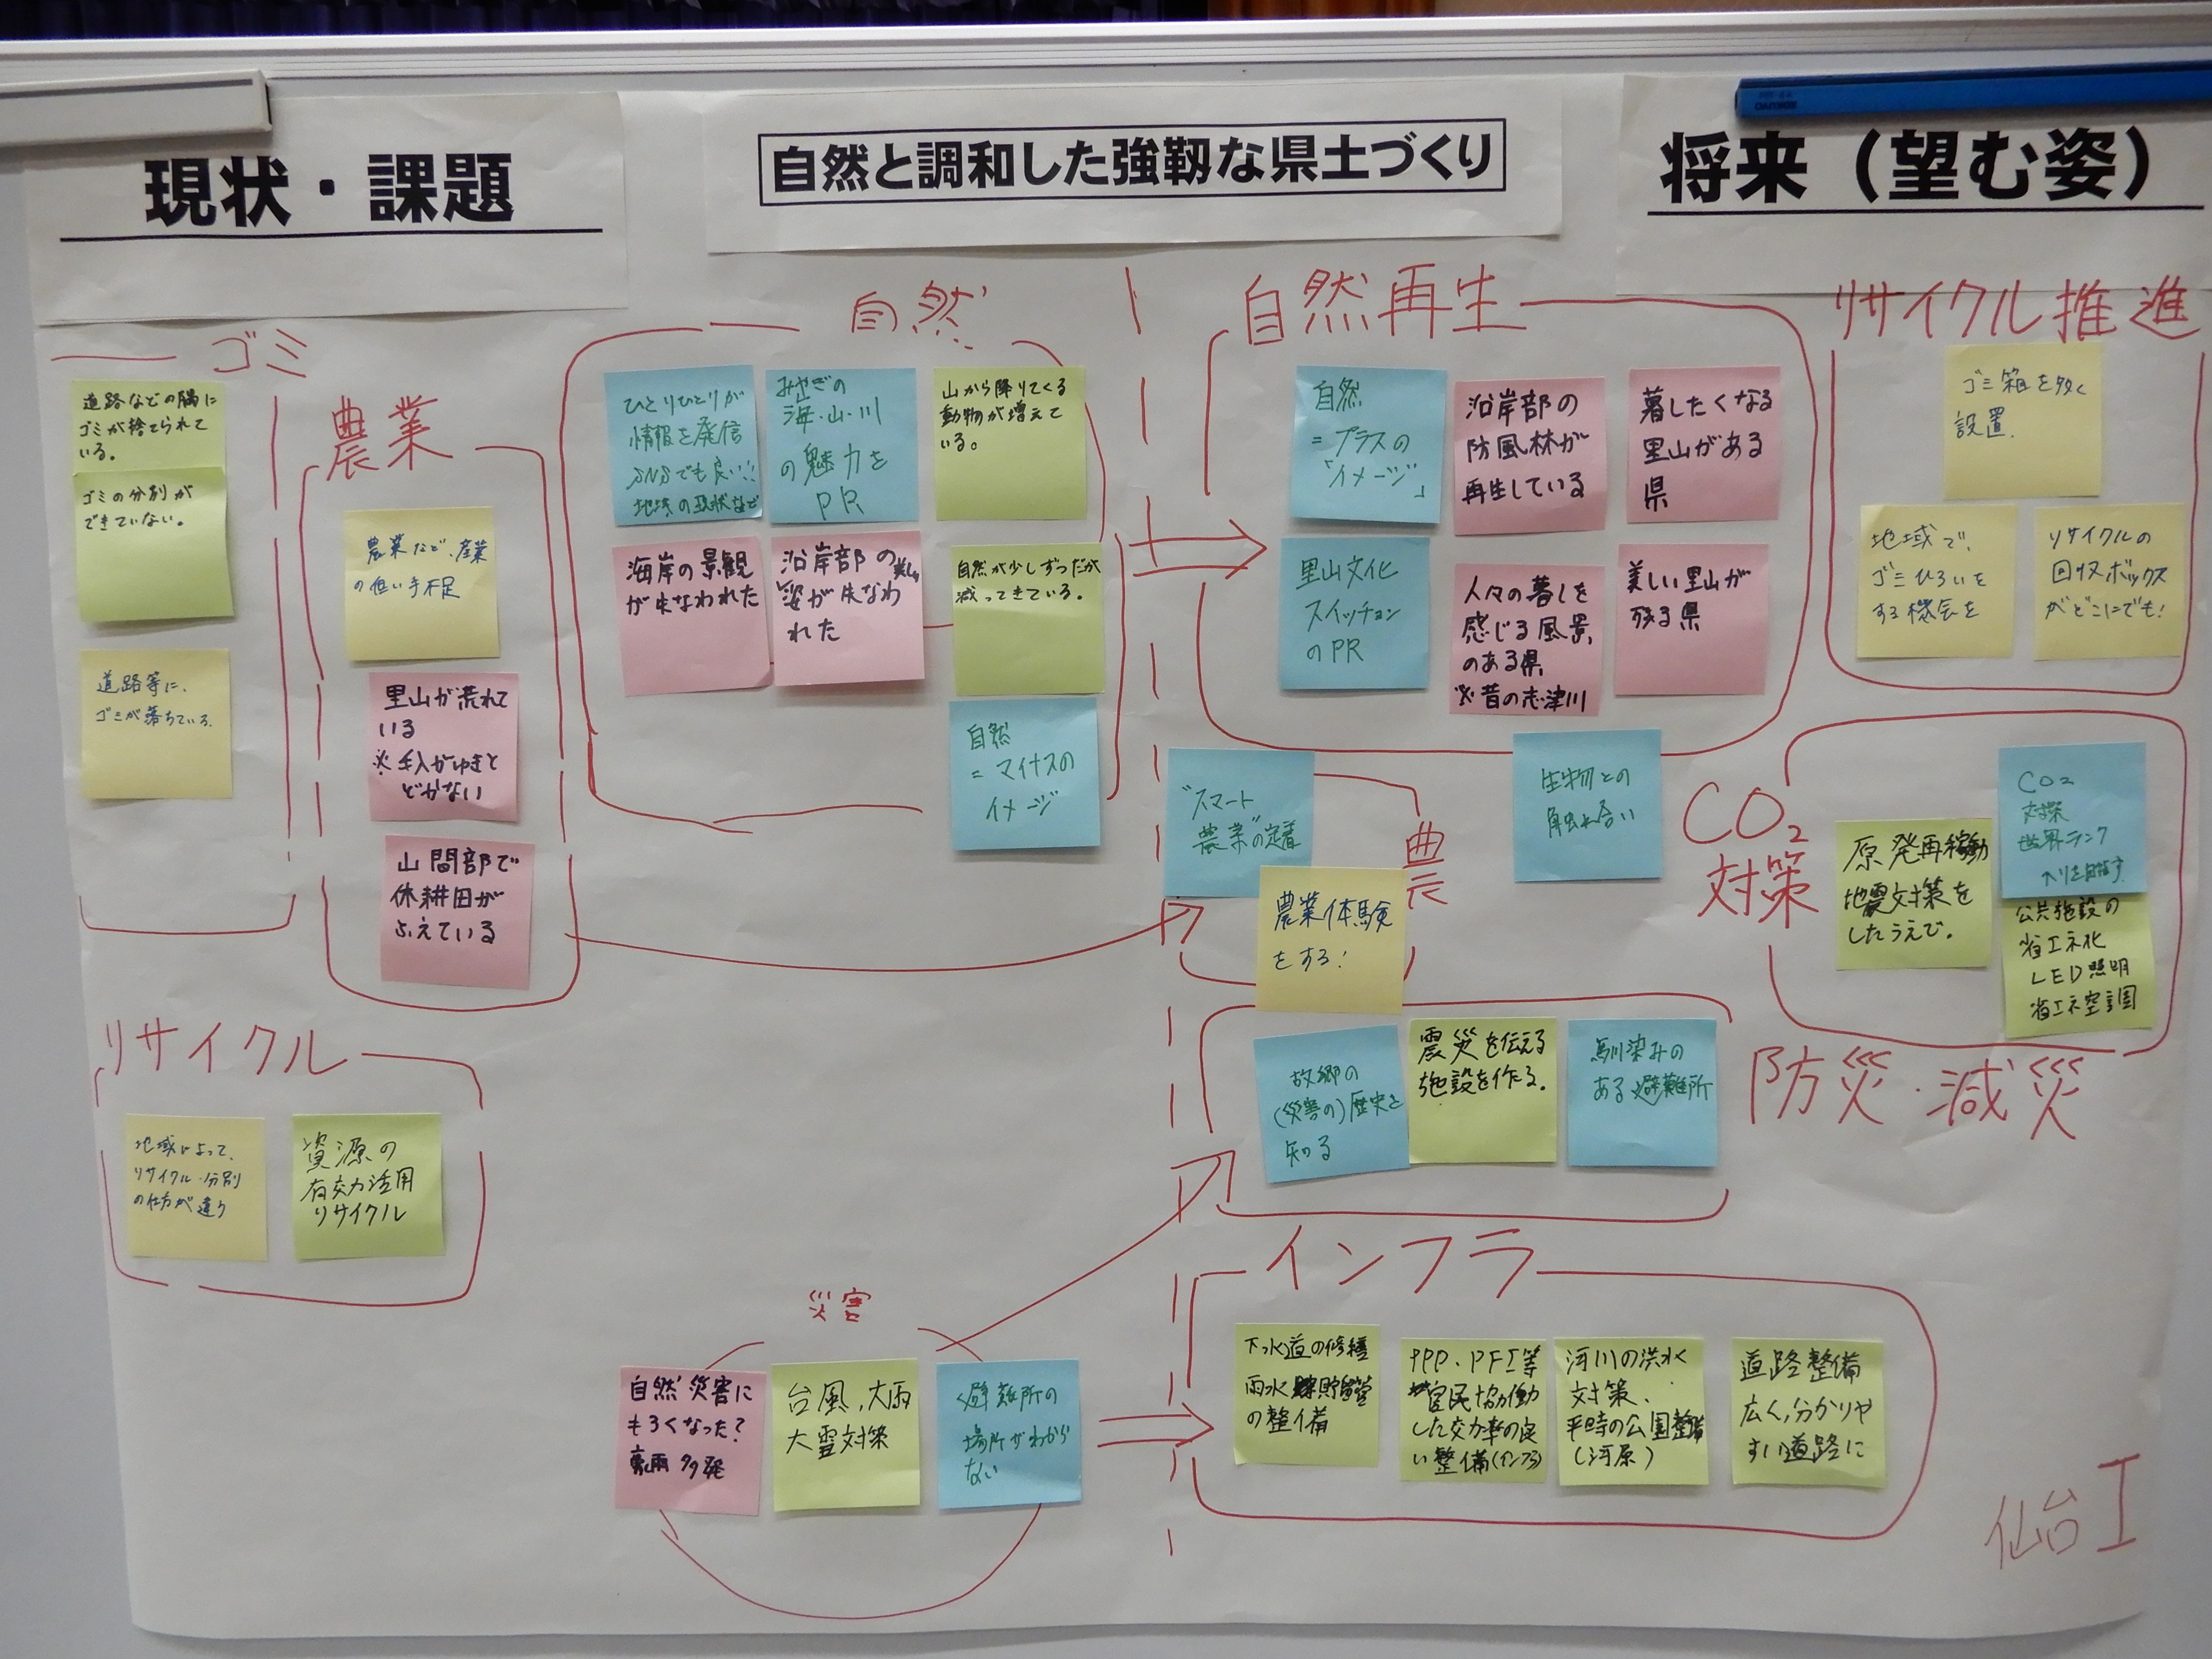 現状・課題
自然と調和した強靱な県土づくり
将来（望む姿）
ゴミ
道路などの隅に
ゴミが捨てられて
いる。
ゴミの分別が
できていない。
道路等に、
ゴミが落ちている。
農業
農業など、産業
の担い手不足
里山が荒れて
いる
※手入がゆきと
どかない
山間部で
休耕田が
ふえている
リサイクル
地域によって、
リサイクル・分別
の仕方が違う
資源の
有効活用
リサイクル
自然
ひとりひとりが
情報を発信
SNSでも良い!!
地域の現状など
みやぎの
海・山・川
の魅力を
PR
山から降りてくる
動物が増えて
いる。
海岸の景観
が失なわれた
沿岸部の美しい
姿が失なわ
れた
自然が少しずつだが
減ってきている。
自然
=マイナスの
イメージ
災害
自然災害に
もろくなった?
豪雨多発
台風,大雨
大雪対策
避難所の
場所がわから
ない
自然再生
自然
=プラスの
「イメージ」
沿岸部の
防風林が
再生している
暮したくなる
里山がある
県
里山文化
スイッチョン
のPR
人々の暮しを
感じる風景
のある県
※昔の志津川
美しい里山が
残る県
生物との
触れ合い
農
"スマート
農業"の定着
農業体験
をする!
リサイクル推進
ゴミ箱を多く
設置
地域で、
ゴミひろいを
する機会を
リサイクルの
回収ボックス
がどこにでも!
CO₂
対策
原発再稼動
地震対策を
したうえで。
CO₂
対策
世界ランク
入りを目指す
公共施設の
省エネ化
LED照明
省エネ空調
防災・減災
故郷の
(災害の)歴史を
知る
震災を伝える
施設を作る.
馴染みの
ある避難所
インフラ
下水道の修繕
雨水貯留管
の整備
PPP・PFI等
官民協働
した効率の良
い整備(インフラ)
河川の洪水
対策、
平時の公園整備
(河原)
道路整備
広く,分かりや
すい道路に
仙台I
KOKUYO